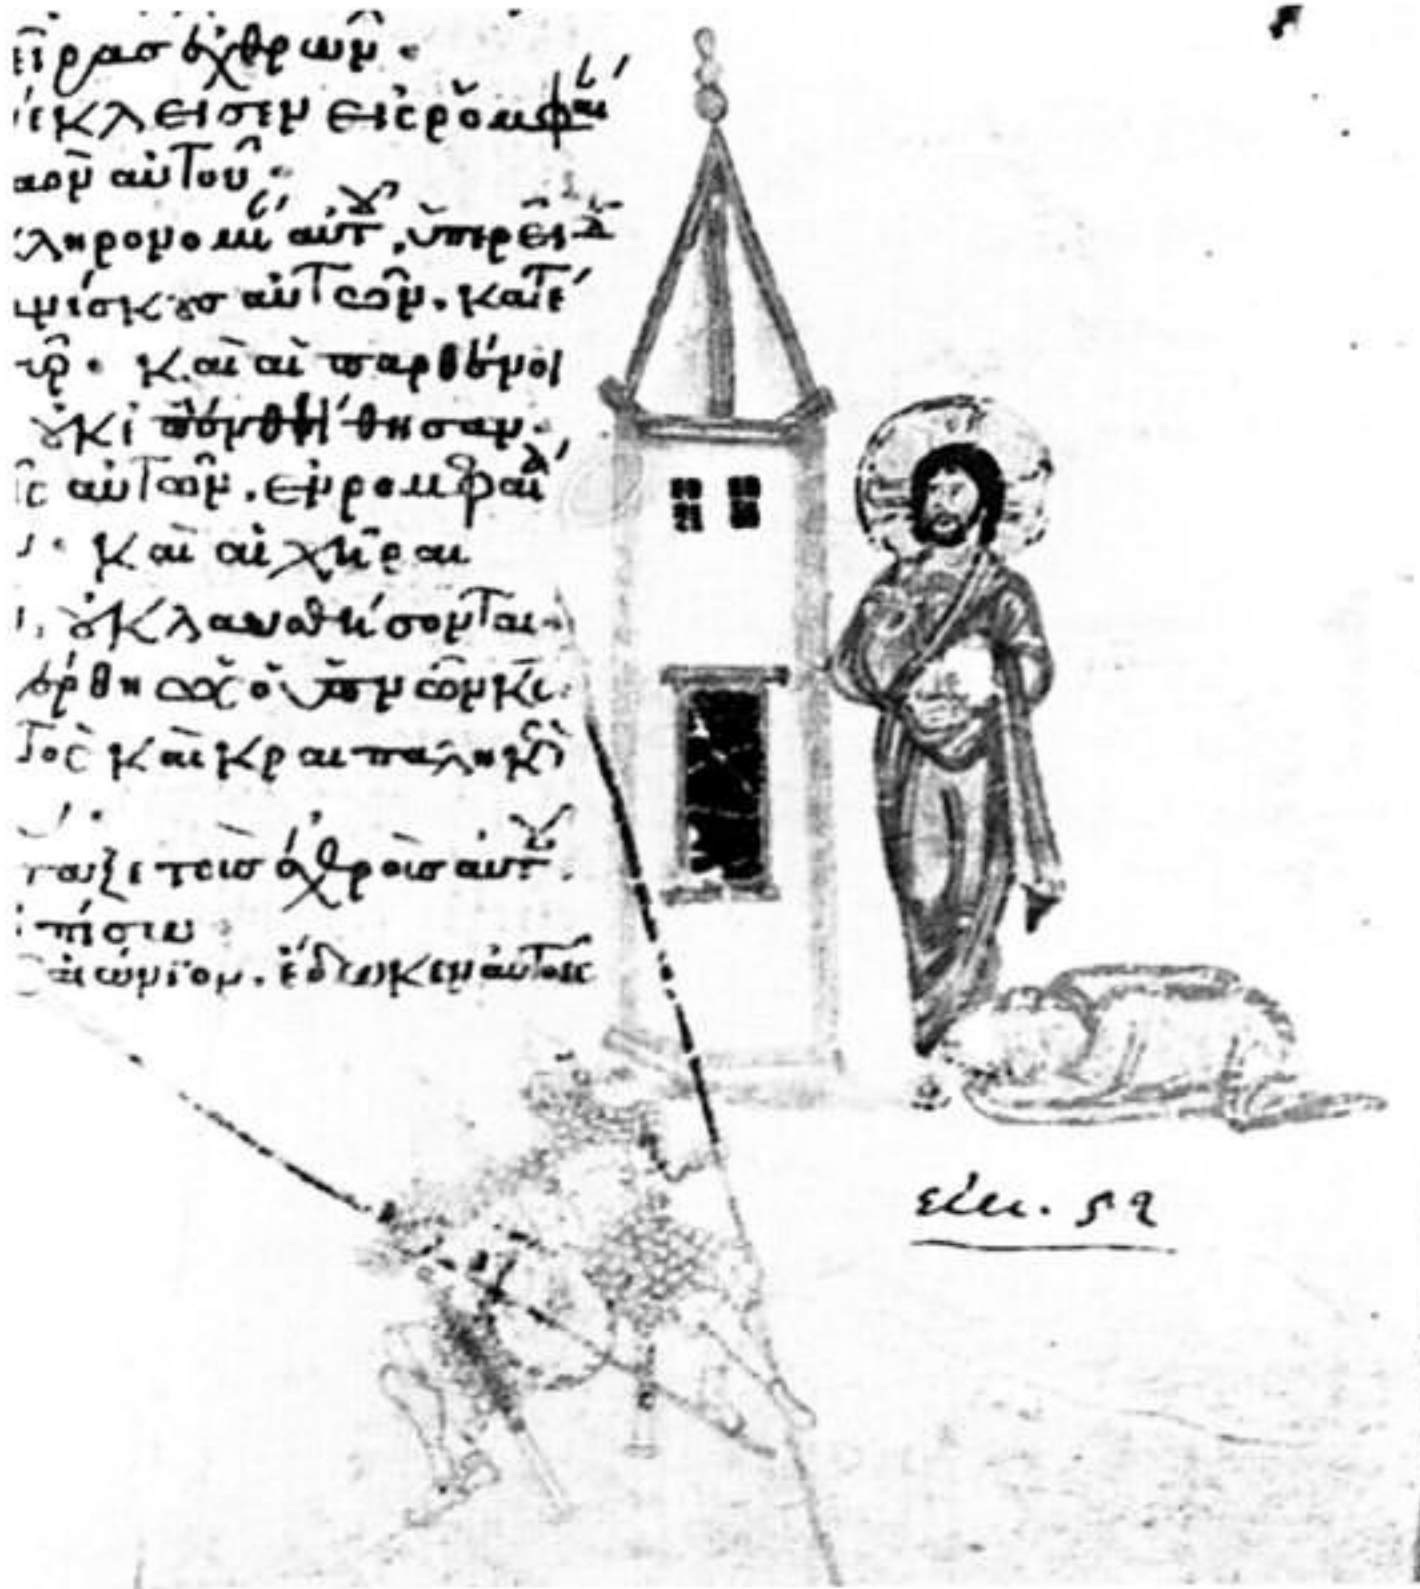 εῖρασ ἐχθρῶν·
έκλεισεν εἰς ρομφαί
αὸν αὐτοῦ·
κληρονομί αὐτ, ὑπερεῖδ
νίσκουσ αὐτῶν. κατέ
ῦρ· καὶ αἱ παρθένοι
οὐκ ἐπενθήθησαν·
ῖς αὐτῶν. ἐν ρομφαί
καὶ αἱ χῆραι
οὐ κλαυσθήσονται·
έρθη ὡς ὁ ὑπνῶν κς·
τὸς καὶ κραιπαληκὼ
ταξε τοὺσ ἐχθροὺσ αὐτοῦ.
πίσω·
αἰώνιον. ἔδωκεν αὐτοῖς
εἰκ. 52